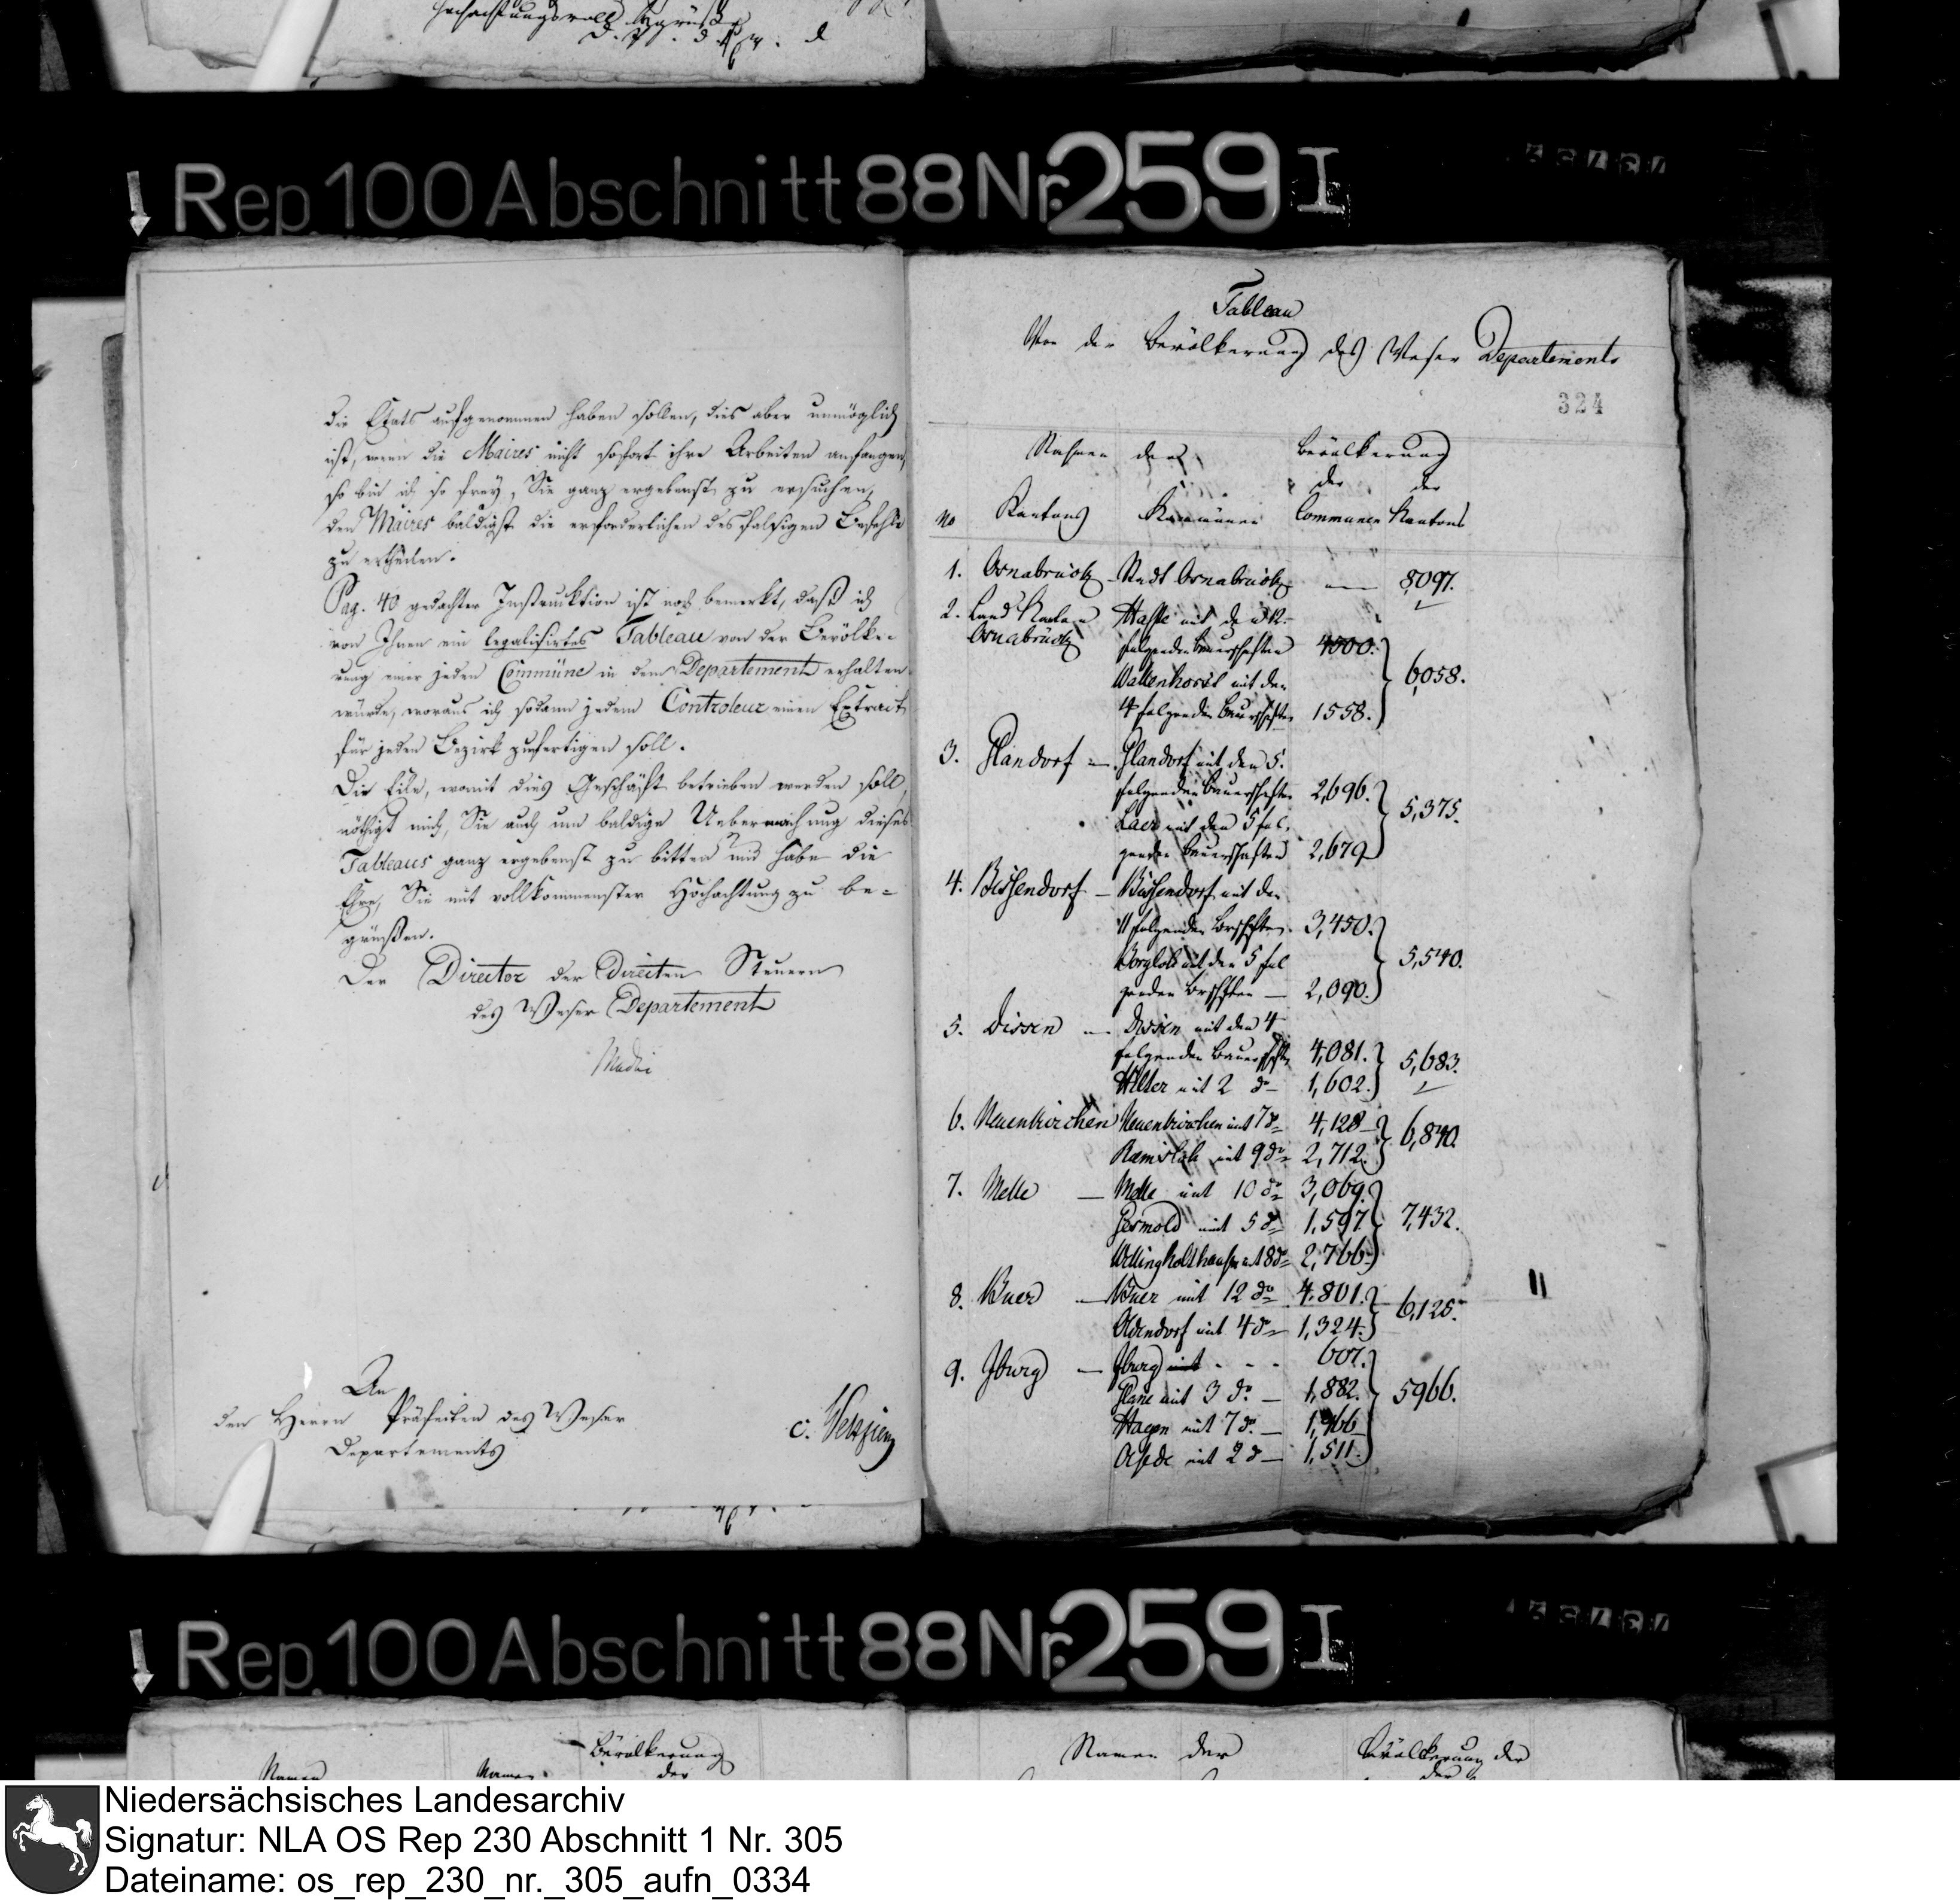 Rep. 100 Abschnitt 88 Nr. 259 I
die Etats aufgenommen haben sollen, dies aber unmöglich
ist, wenn die Maires nicht sofort ihre Arbeiten anfangen,
so bin ich so frey, Sie ganz ergebenst zu ersuchen,
den Maires baldigst die erforderlichen desfalsigen Befehle
zu ertheilen.
Pag. 40 gedachter Instruktion ist noch bemerkt, daß ich
von Ihnen ein legalisirtes Tableau von der Bevölke-
rung einer jeden Commüne in dem Departement erhalten
würde, woraus ich sodann jedem Controleur einen Extract
für jeden Bezirk zufertigen soll.
Die Eile, womit dies Geschäft betrieben werden soll,
nöthigt mich, Sie auch um baldige Uebermachung dieses
Tableaus ganz ergebenst zu bitten und habe die
Ehre, Sie mit vollkommenster Hochachtung zu be-
grüßen.
Der Director der Directen Steuern
des Weser Departement
An
den Herrn Präfecten des Weser
Departements
Tableau
Von der Bevölkerung des Weser Departements
324
Nahmen der Bevölkerung
der der
No Kantons Kommünen Communen Kantons
1. Osnabrück - Stadt Osnabrück — 8097.
2. Land Kanton Haste mit den 12.
Osnabrück folgenden Bauerschaften 4500. 6,058.
Wallenhorst mit den
4 folgenden Bauerschften 1558.
3. Glandorf — Glandorf mit den 5.
folgenden Bauerschften 2,696. 5,375.
Laer mit den 5 fol-
genden Bauerschaften 2,679
4. Bissendorf — Bissendorf mit den
11 folgenden Brschften 3,450. 5,540.
Borgloh mit den 5 fol
genden Brschften — 2,090.
5. Dissen — Dissen mit den 4
folgenden Bauerschften 4,081. 5,683.
Hilter mit 2 do — 1,602.
6. Neuenkirchen Neuenkirchen mit 7 do 4,128 6,840.
Riemsloh mit 9 do 2,712.
7. Melle — Melle mit 10 do 3,069. 7,432.
Gesmold mit 5 do 1,597
Wellingholthausen mit 8 do 2,766.
8. Buer — Buer mit 12 do 4.801. 6,125.
Oldendorf mit 4 do 1,324.
9. Iburg — Iburg mit - - - 607. 5966.
Glane mit 3 do. — 1,882.
Hagen mit 7 do. — 1,966
Oesede mit 2 do — 1,511.
Rep. 100 Abschnitt 88 Nr. 259 I
Bevölkerung
Namen Namen der
Namen der Bevölkerung der
Niedersächsisches Landesarchiv
Signatur: NLA OS Rep 230 Abschnitt 1 Nr. 305
Dateiname: os_rep_230_nr._305_aufn_0334